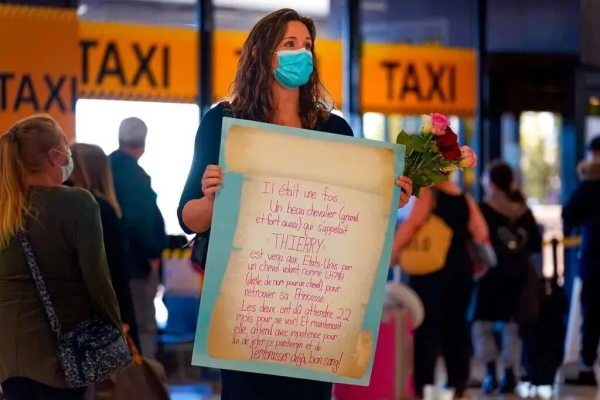 TAXI
TAXI
TAXI
Il était une fois...
Un beau chevalier (grand
et fort aussi) qui s'appelait
"THIERRY"
est venu aux États-Unis par
un cheval volant nommé
(drôle de nom pour un cheval) pour
retrouver sa Princesse.
Les deux ont dû attendre 22
mois pour se voir! Et maintenant
elle attend avec impatience pour
lui de jeter ce parchemin et de
l'embrasser déjà, bon sang!